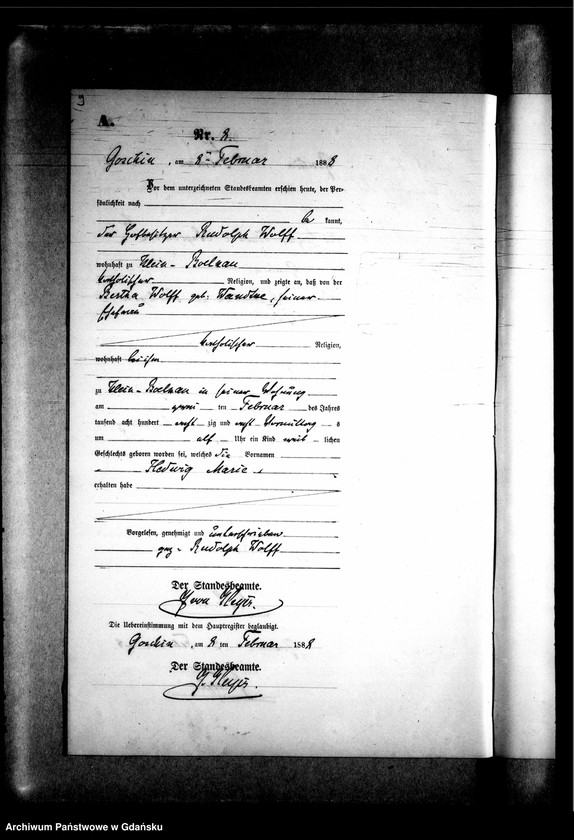 9
A.
Nr. 8.
Goschin, am 8ten Februar 1888
Vor dem unterzeichneten Standesbeamten erschien heute, der Per-
sönlichkeit nach
be kannt,
der Hofbesitzer Rudolph Wolff
wohnhaft zu Klein-Boelkau
katholischer Religion, und zeigte an, daß von der
Bertha Wolff geb: , seiner
Ehefrau
katholischer Religion,
wohnhaft bei ihm
zu Klein-Boelkau in seiner Wohnung
am zwei ten Februar des Jahres
tausend acht hundert acht zig und acht Vormittag s
um elf Uhr ein Kind weib lichen
Geschlechts geboren worden sei, welches die Vornamen
Hedwig Marie
erhalten habe
Vorgelesen, genehmigt und unterschrieben
gez. Rudolph Wolff
Der Standesbeamte.
von Heyer.
Die Uebereinstimmung mit dem Hauptregister beglaubigt.
Goschin, am 8 ten Februar 1888
Der Standesbeamte.
Heyer.
Archiwum Państwowe w Gdańsku